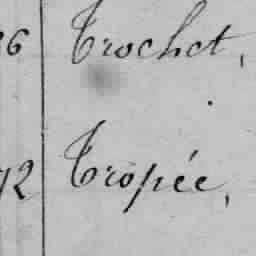 26 Trochet,
72 Tropée,